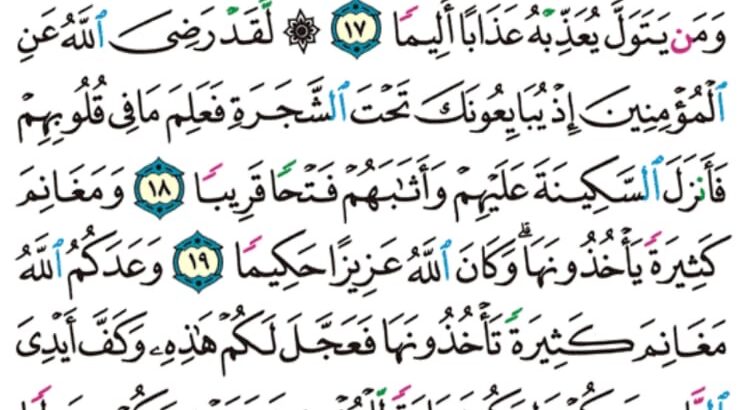 وَمَن يَتَوَلَّ يُعَذِّبْهُ عَذَابًا أَلِيمًا ١٧ ۞ لَّقَدْ رَضِيَ ٱللَّهُ عَنِ
ٱلْمُؤْمِنِينَ إِذْ يُبَايِعُونَكَ تَحْتَ ٱلشَّجَرَةِ فَعَلِمَ مَا فِى قُلُوبِهِمْ
فَأَنزَلَ ٱلسَّكِينَةَ عَلَيْهِمْ وَأَثَٰبَهُمْ فَتْحًا قَرِيبًا ١٨ وَمَغَانِمَ
كَثِيرَةً يَأْخُذُونَهَا ۗ وَكَانَ ٱللَّهُ عَزِيزًا حَكِيمًا ١٩ وَعَدَكُمُ ٱللَّهُ
مَغَانِمَ كَثِيرَةً تَأْخُذُونَهَا فَعَجَّلَ لَكُمْ هَٰذِهِۦ وَكَفَّ أَيْدِىَ